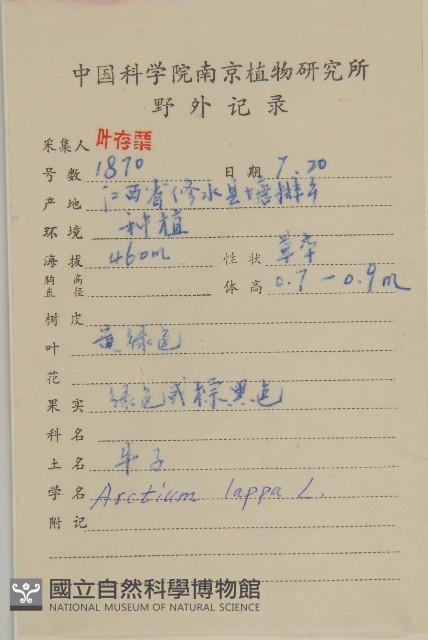 中国科学院南京植物研究所
野外记录
采集人 叶存粟
号数 1870 日期 7.20
产地 江西省修水县
环境 种植
海拔 460m 性状 草本
胸高直径 体高 0.7—0.9m
树皮
叶 黄绿色
花
果实 绿色或棕黑色
科名
土名 牛子
学名 Arctium lappa L.
附记
國立自然科學博物館
NATIONAL MUSEUM OF NATURAL SCIENCE